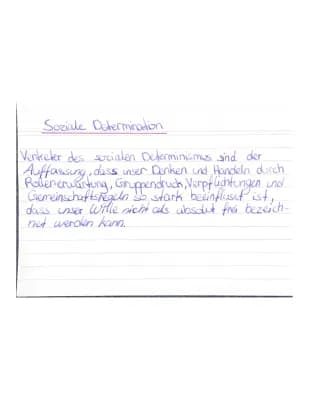 Soziale Determination
Vertreter des sozialen Determinismus sind der
Auffassung, dass unser Denken und Handeln durch
Rollenerwartung, Gruppendruck, Verpflichtungen und
Gemeinschaftsregeln so stark beeinflusst ist,
dass unser Wille nicht als absolut frei bezeich-
net werden kann.